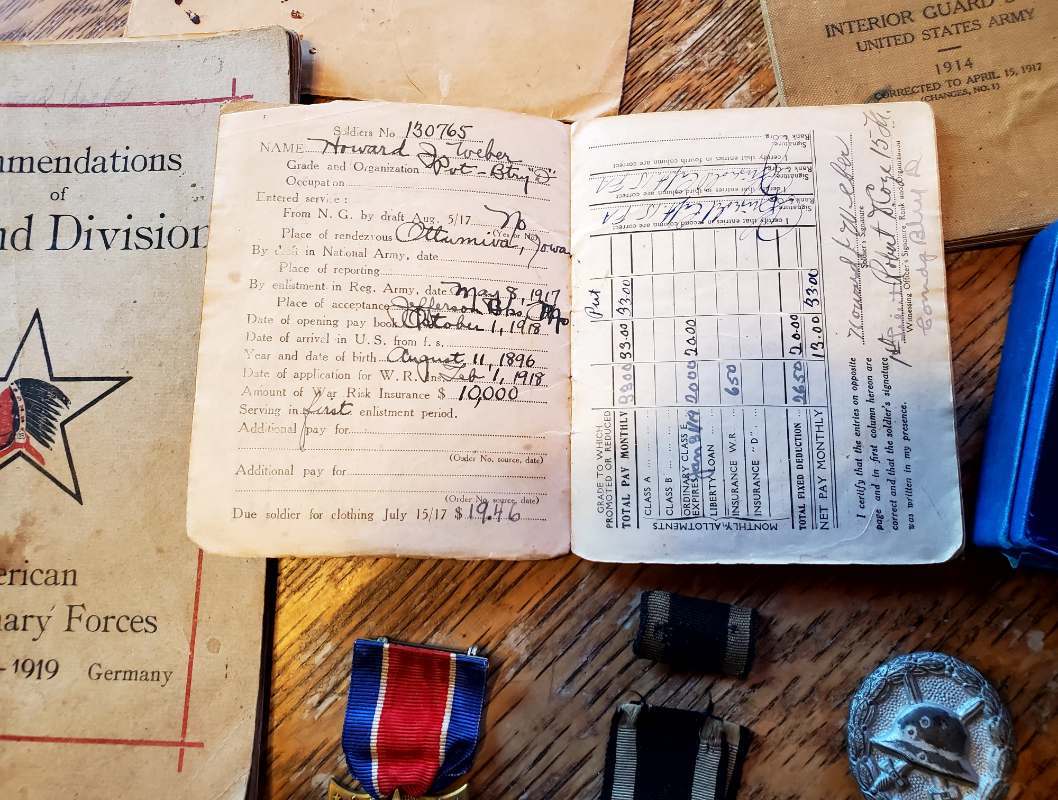 mmendations
of
nd Division
erican
nary Forces
-1919 Germany
INTERIOR GUARD
UNITED STATES ARMY
1914
CORRECTED TO APRIL 15, 1917
(CHANGES, NO. 1)
Soldiers No. 130765
NAME Howard J. Weber
Grade and Organization Pvt - Btry "D"
Occupation
Entered service:
From N. G. by draft Aug. 5/17 No
(Yes or No)
Place of rendezvous Ottumwa, Iowa
By draft in National Army, date
Place of reporting
By enlistment in Reg. Army, date May 8, 1917
Place of acceptance Jefferson Bks. Mo
Date of opening pay book October 1, 1918
Date of arrival in U. S. from f. s.
Year and date of birth August 11, 1896
Date of application for W. R. Ins Feb 1, 1918
Amount of War Risk Insurance $ 10,000
Serving in first enlistment period.
Additional pay for
(Order No. source, date)
Additional pay for
(Order No. source, date)
Due soldier for clothing July 15/17 $ 19.46
GRADE TO WHICH PROMOTED OR REDUCED Pvt
TOTAL PAY MONTHLY 33.00 33.00 33.00
CLASS A
CLASS B
ORDINARY CLASS E 20.00 20.00
EXPIRES
LIBERTY LOAN
INSURANCE W.R 650
INSURANCE "D"
MONTHLY ALLOTMENTS
TOTAL FIXED DEDUCTION 2650 20.00
NET PAY MONTHLY 13.00 33.00
I certify that the entries on opposite
page and in first column hereon are
correct and that the soldier's signature
was written in my presence.
Soldier's Signature
Witnessing Officer's Signature, Rank and Organization
Comdg Btry D
I certify that entries in second column are correct
Signature
Rank & Org.
I certify that entries in third column are correct
Signature
Rank & Org.
I certify that entries in fourth column are correct
Signature
Rank & Org.